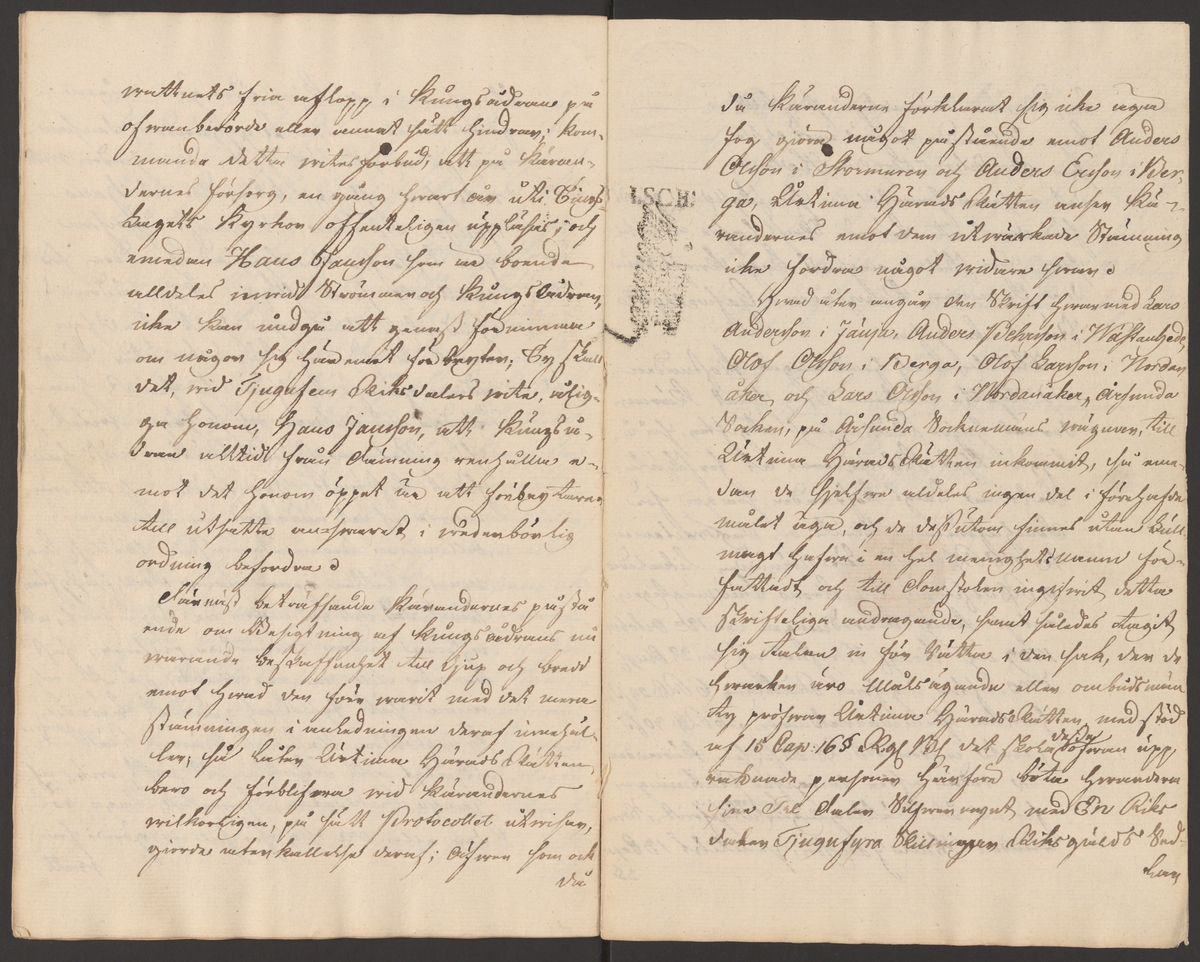 wattnets fria aflopp i Kungsådran på
ofwanberörde eller annat sätt hindrar; kom-
mande detta vites förbud, att på Käran-
dernes försorg, en gång hwart år uti Tings-
Lagets Kyrkor offenteligen uppläsas; och
emedan Hans Jansson som är boende
alldeles inwid Strömmen och Kungsådran,
icke kan undgå att genast förnimma
om någon sig häremot förbryter; Ty skall
det, wid Tjugufem Riksdalers wite, ålig-
ga honom, Hans Jansson, att Kungså-
dran alltid från dämning renhålla e-
mot det honom öppet är att förbrytaren
till utsatte answaret i wederbörlig
ordning befordra.
Särnist beträffande Kärandernes påstå
ende om Besigtning af Kungsådrans nu
warande beskaffenhet till djup och bredd
emot hwad den förr warit med det mera
stämningen i anledningen deraf innehål-
ler; så låter Urtima Härads Rätten
bero och förblifwa wid Kärandernes
wilkorligen, på sätt Protocollet utwisar,
gjorde återkallelse deraf; Äfwen som ock
då
då Käranderne förklarat sig icke äga
fog giöra något påstående emot Anders
Olsson i Stormuren och Anders Ersson i Ber-
ga, Urtima Härads Rätten anser Kä-
randernes emot dem utwärkade Stämning
icke fordra något widare swar.
Hwad åter angår den Skrift hwarmed Lars
Andersson i Jänsa, Anders Pehrsson i Wästanhede,
Olof Olsson i Berga, Olof Larsson i Nordan
åker och Lars Olsson i Nordanåker, Årsunda
Socken, på Årsunda Socknemäns wägnar, till
Urtima Härads Rätten inkommit, så eme-
dan de sjelfwe aldeles ingen del i förehafde
målet äga, och de dessutom finnes utan full-
magt hafwa i en hel menighets namn för-
fattadt och till Domstolen ingifwit detta
skrifteliga andragande, samt således tagit
sig talan in för Rätta i den sak, der de
hwarken äro Målsägande eller ombudsmän
Ty pröfwar Urtima Härads Rätten med stöd
af 15 Cap: 16 § Rgs Bl det skola desse ofwan upp
räknade personer härföre böta hwardera
sine Tre Daler Silfwermynt med En Riks
daler Tjugufyra Skillingar Riksgälds Sed-
lar